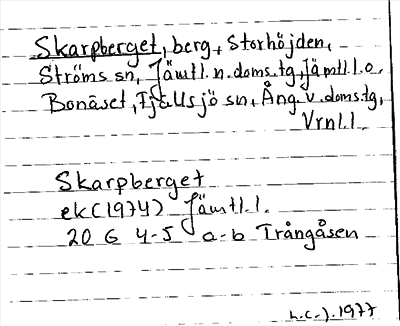 Skarpberget, berg, Storhöjden,
Ströms sn, Jämtl.n.doms.tg, Jämtl.l.o.
Bonäset, Fjällsjö sn, Ång.v.doms.tg,
Vrnl.l.
Skarpberget
ek (1974) Jämtl.l.
20 G 4-5 a-b Trångåsen
1977